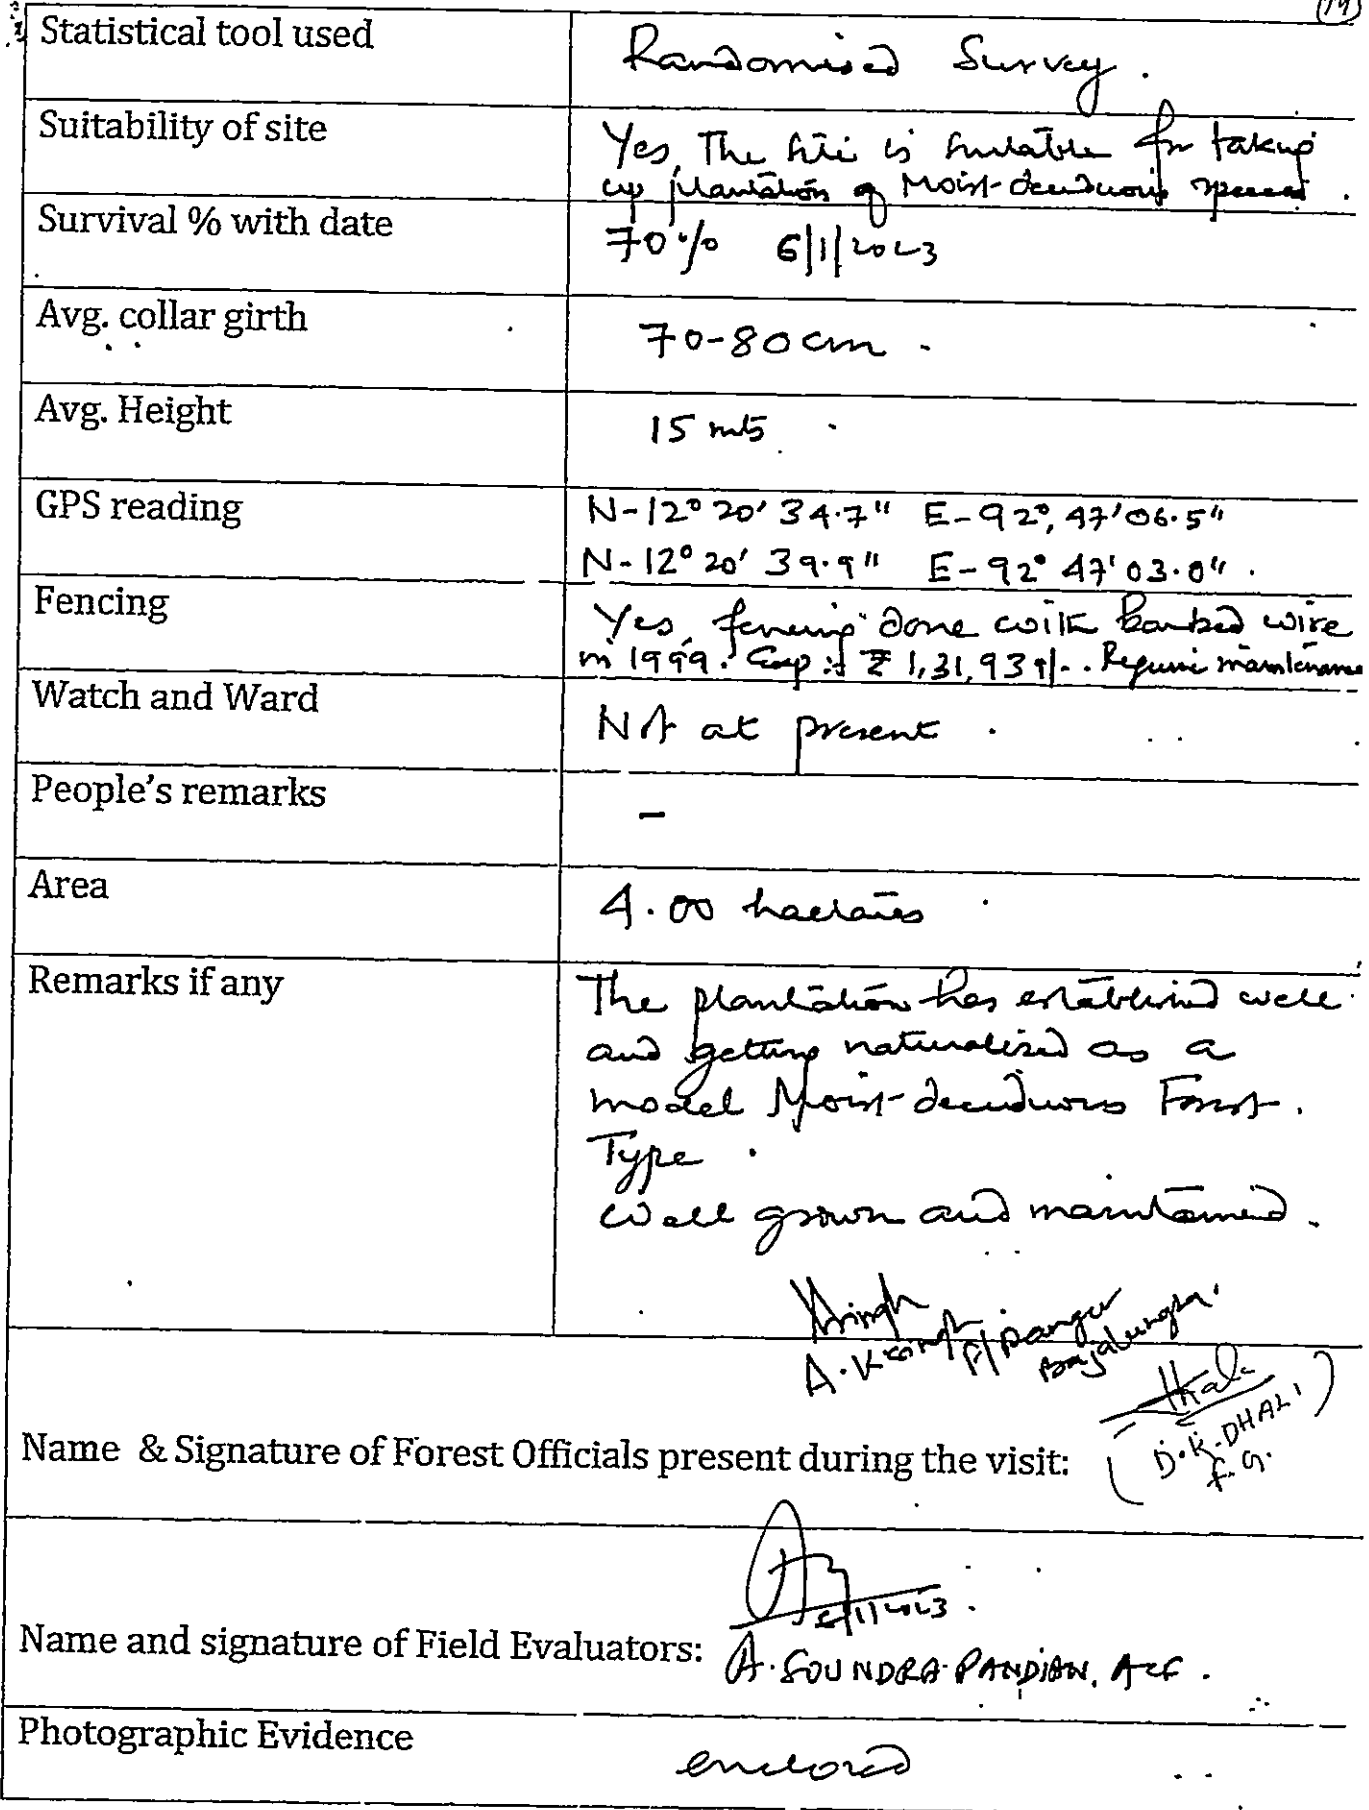 (19)
Statistical tool used
Randomised Survey.
Suitability of site
Yes, The site is suitable for taking
up plantation of Moist-deciduous species.
Survival % with date
70% 6/1/2023
Avg. collar girth
70-80cm.
Avg. Height
15 mts.
GPS reading
N-12° 20' 34.7" E-92°, 47' 06.5"
N-12° 20' 39.9" E-92° 47' 03.0".
Fencing
Yes, fencing done with barbed wire
in 1999. Exp : ₹ 1,31,939/-. Require maintenance
Watch and Ward
NA at present.
People's remarks
-
Area
4.00 hactares
Remarks if any
The plantation has established well
and getting naturalised as a
model Moist-deciduous Forest.
Type.
Well grown and maintained.
A.K Singh
Name & Signature of Forest Officials present during the visit:
(D.K. DHALI)
F.G.
6/1/2023.
Name and signature of Field Evaluators:
A. SOUNDRA PANDIAN, ACF.
Photographic Evidence
enclosed